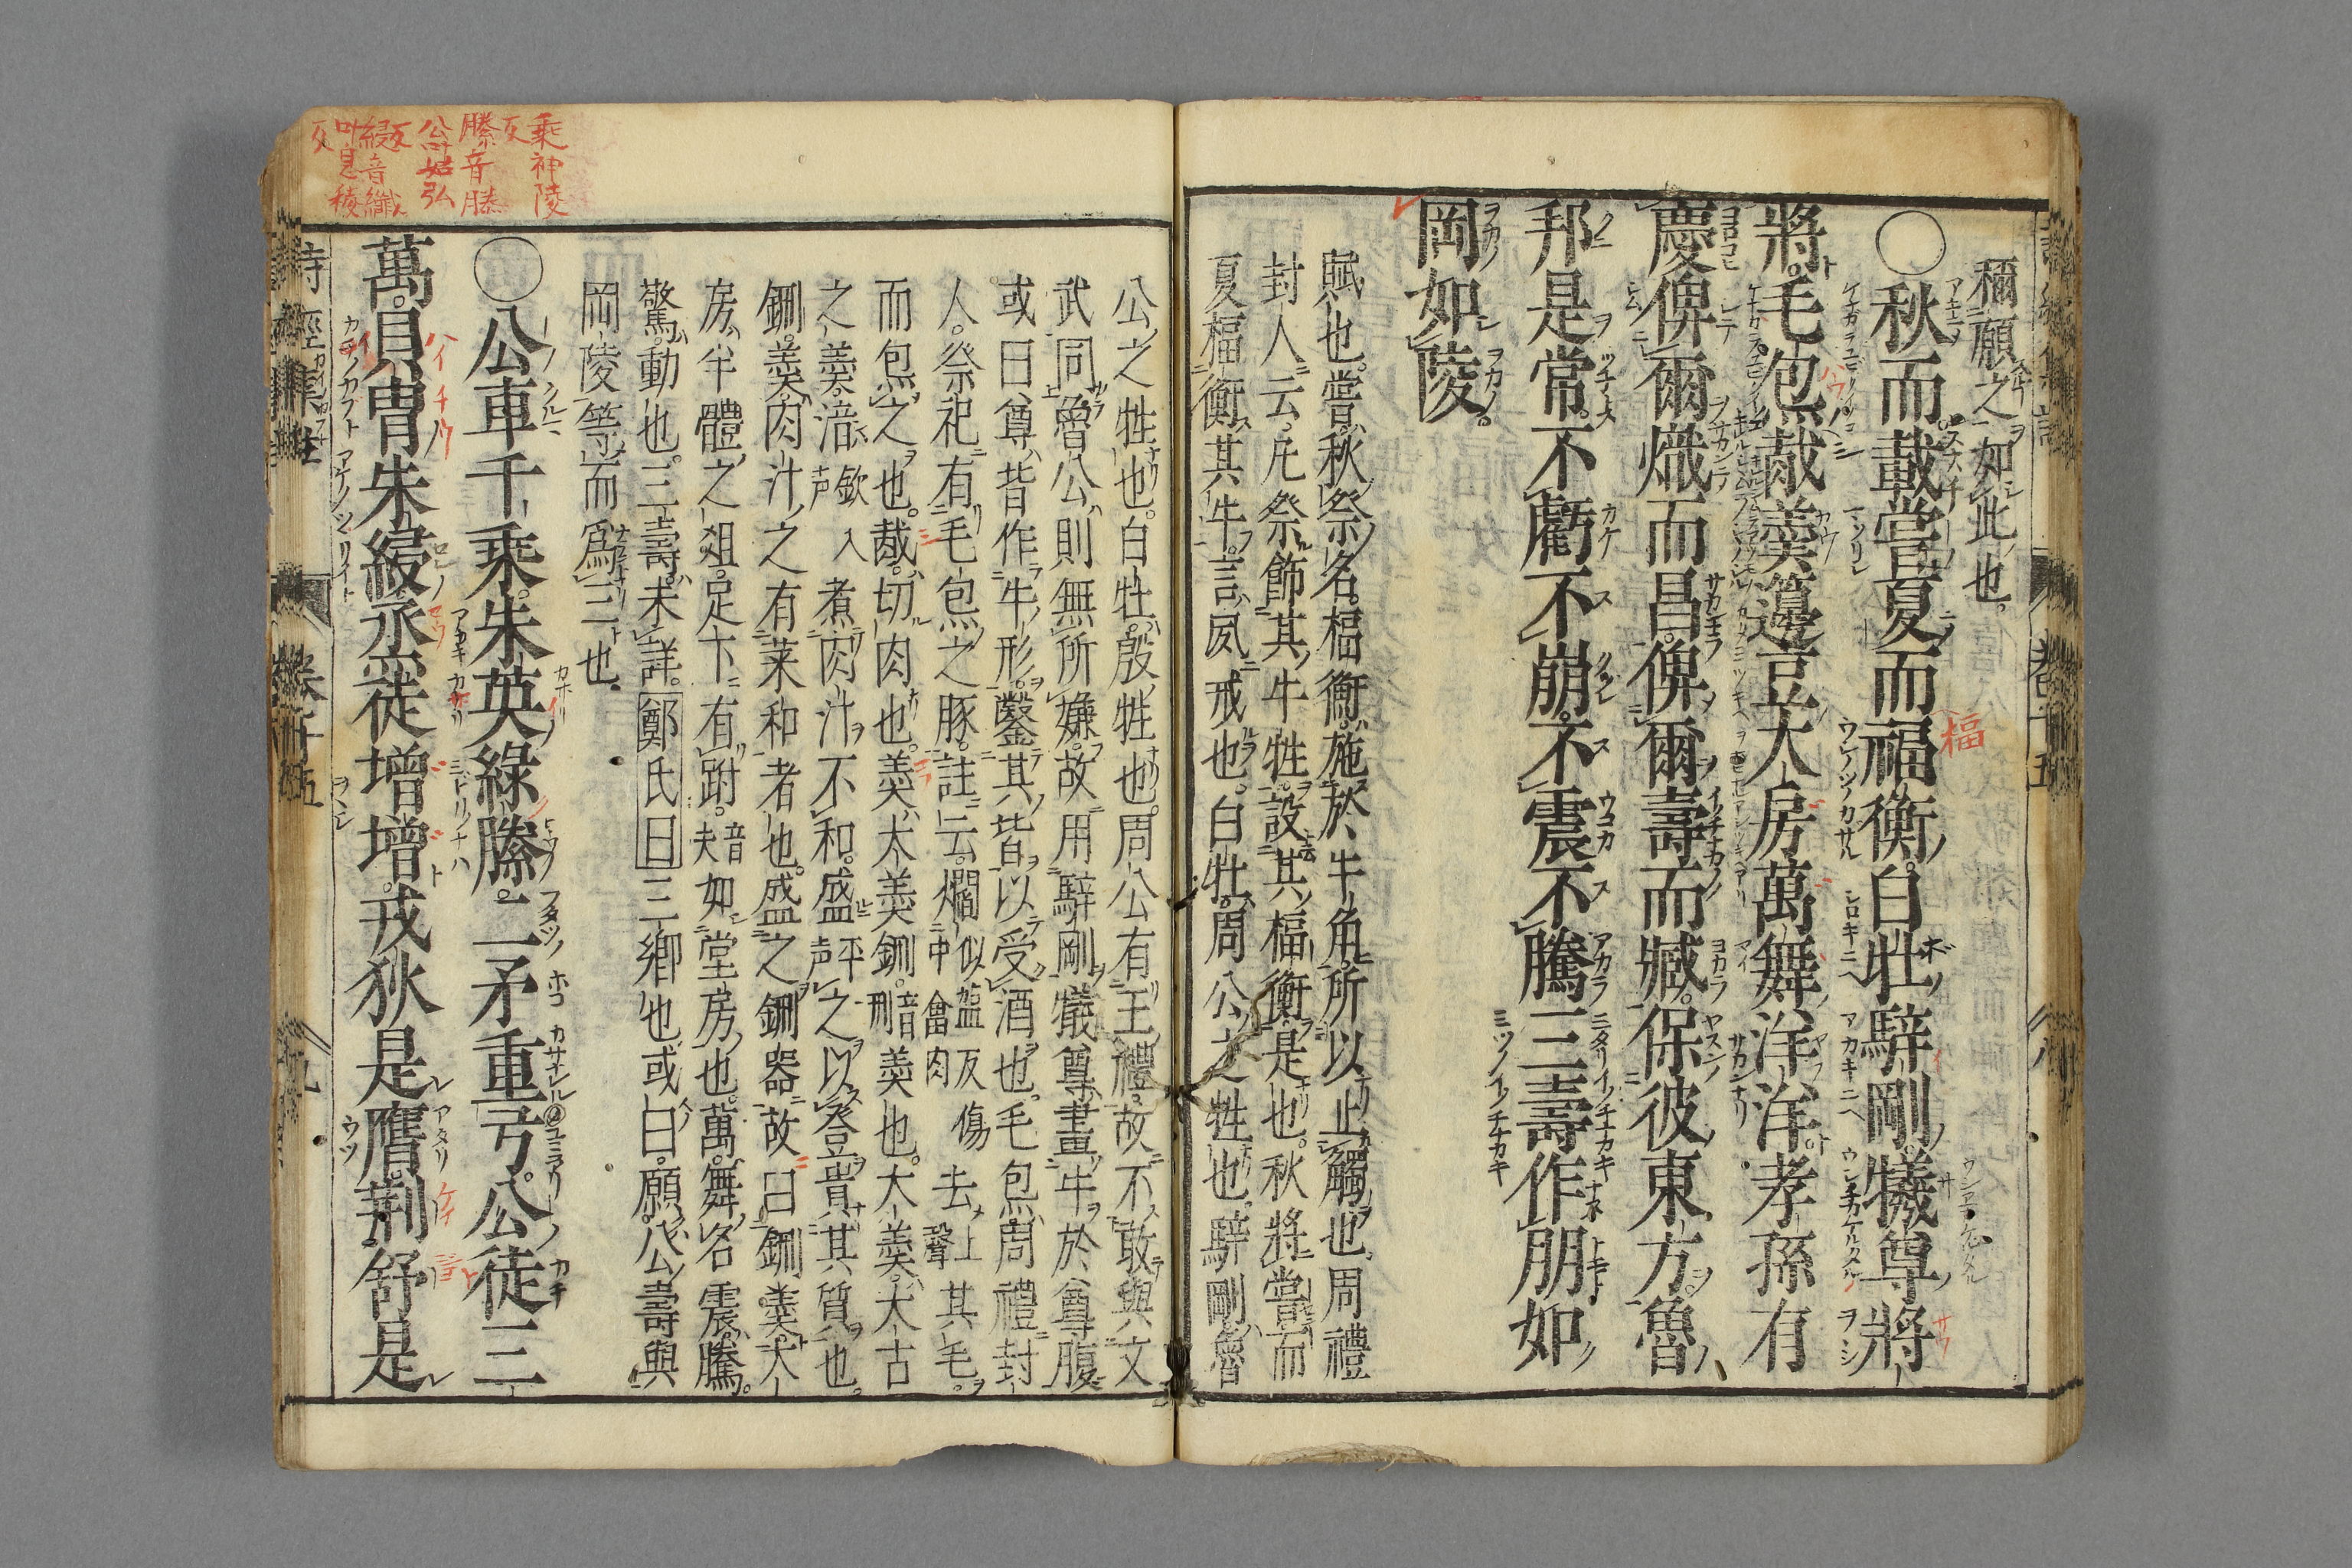 稱願之如此也
○秋而載嘗夏而福衡白牡騂剛犧尊將
將毛炰胾羹籩豆大房萬舞洋洋孝孫有
慶俾爾熾而昌俾爾壽而臧保彼東方魯
邦是常不虧不崩不震不騰三壽作朋如
岡如陵
賦也嘗秋祭名楅衡施於牛角所以止觸也周禮
封人云凡祭飾其牛牲設其楅衡是也秋將嘗而
夏楅衡其牛言夙戒也白牡周公之牲也騂剛魯
公之牲也白牡殷牲也周公有王禮故不敢與文
武同魯公則無所嫌故用騂剛犧尊畫牛於尊腹
或曰尊皆作牛形鑿其背以受酒也毛炰周禮封
人祭祀有毛炰之豚註云爓似鹽反中畲肉傷去上聲其毛
而炰之也胾切肉也羹大羹鉶音刑羹也大羹大古
之羹湆欽入声煮肉汁不和盛平声之以登貴其質也
鉶羹肉汁之有菜和者也盛之鉶器故曰鉶羹大
房半體之俎足下有跗音夫如堂房也萬舞名震騰
驚動也三壽未詳鄭氏曰三卿也或曰願公壽與
岡陵等而爲三也
○公車千乘朱英綠縢二矛重弓公徒三
萬貝冑朱綅烝徒增增戎狄是膺荆舒是
乘神陵
反
縢音騰
公叶姑弘
反
綅音纖
叶息稜
反
福
詩經集註
卷十五
九